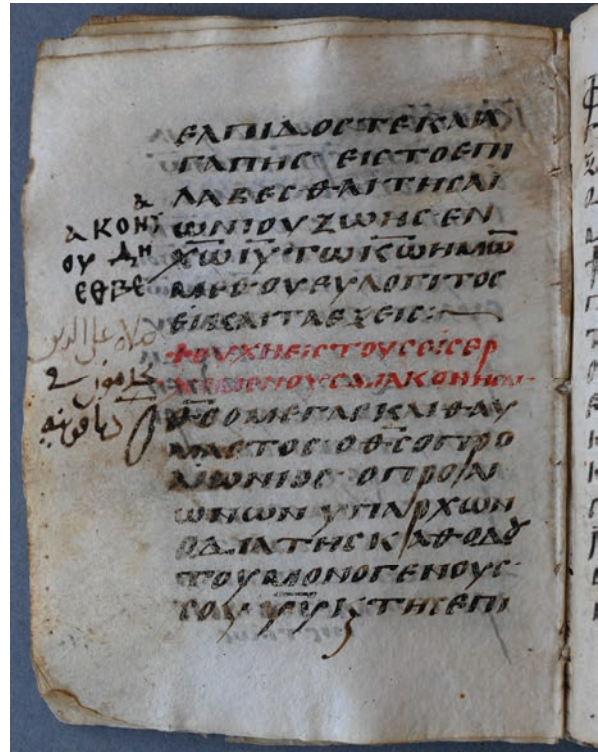 ΕΛΠΙΔΟCΤΕΚΑΙΑ
ΓΑΠΗC· ΕΙCΤΟΕΠΙ
ΛΑΒΕCΘΑΙΤΗCΑΙ
ΩΝΙΟΥΖΩΗCΕΝ
Χ̅Ω̅Ι̅Υ̅ΤΩΚ̅Ω̅ΗΜΩ̅
ΜΕΘΟΥΕΥΛΟΓΙΤΟC
ΕΙΕCΑΙΤΑΕΧΕΙC:
ΕΥΧΗΕΙCΤΟΥCΕΙCΕΡ
ΧΟΜΕΝΟΥCΔΙΑΚΟΝΗCΑΙ·
Θ̅C̅ΟΜΕΓΑCΚΑΙΘΑΥ
ΜΑCΤΟC· ΟΘ̅C̅ΟΠΡΟ
ΑΙΩΝΙΟC· ΟΠΡΟΑΙ
ΩΝΩΝΥΠΑΡΧΩΝ
ΟΔΙΑΤΗCΚΑΘΟΔȢ
ΤΟΥΜΟΝΟΓΕΝΟΥC·
ΤΟΥΥ̅Υ̅ΚΤΗCΕΠΙ
Α
ΑΚΟΝΙ
ΟΥ ΔΗ
ΕΘΒΕ
صلاه على الدين